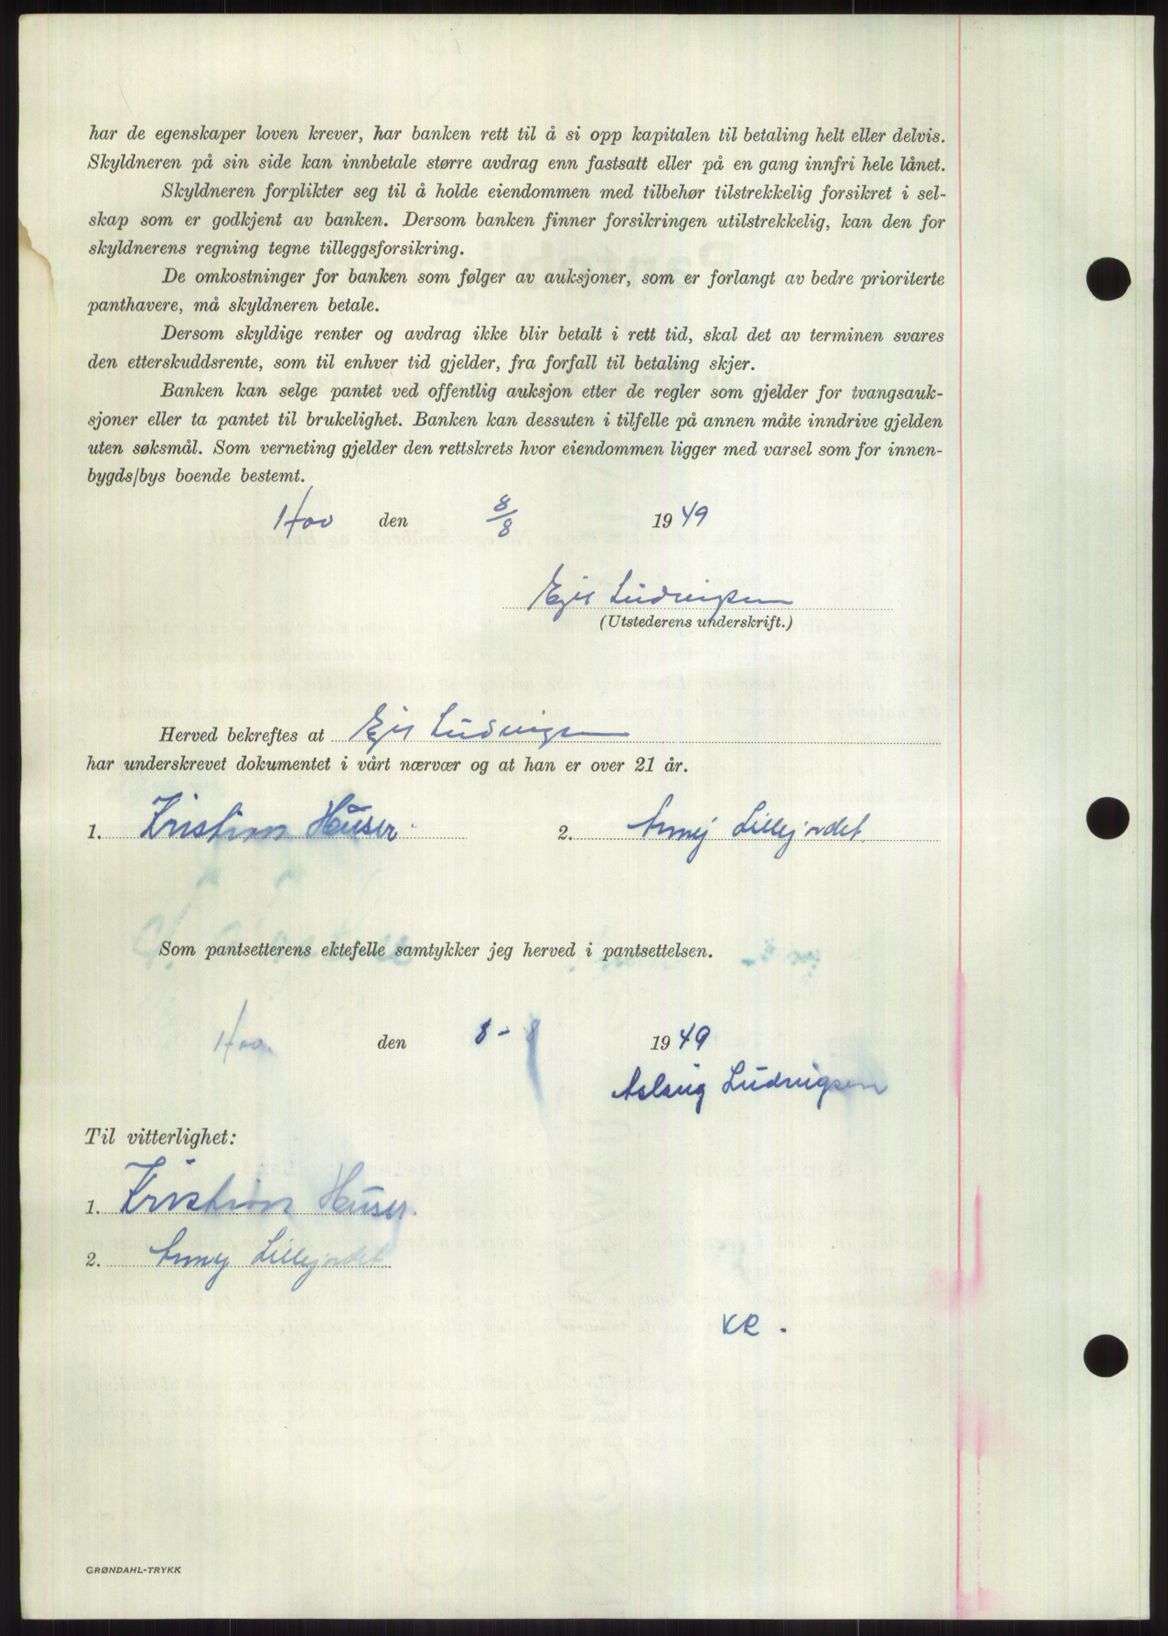 har de egenskaper loven krever, har banken rett til å si opp kapitalen til betaling helt eller delvis.
Skyldneren på sin side kan innbetale større avdrag enn fastsatt eller på en gang innfri hele lånet.
Skyldneren forplikter seg til å holde eiendommen med tilbehør tilstrekkelig forsikret i sel-
skap som er godkjent av banken. Dersom banken finner forsikringen utilstrekkelig, kan den for
skyldnerens regning tegne tilleggsforsikring.
De omkostninger for banken som følger av auksjoner, som er forlangt av bedre prioriterte
panthavere, må skyldneren betale.
Dersom skyldige renter og avdrag ikke blir betalt i rett tid, skal det av terminen svares
den etterskuddsrente, som til enhver tid gjelder, fra forfall til betaling skjer.
Banken kan selge pantet ved offentlig auksjon etter de regler som gjelder for tvangsauk-
sjoner eller ta pantet til brukelighet. Banken kan dessuten i tilfelle på annen måte inndrive gjelden
uten søksmål. Som verneting gjelder den rettskrets hvor eiendommen ligger med varsel som for innen-
bygds/bys boende bestemt.
Hov den 8/8 1949
Egil Ludvigsen
(Utstederens underskrift.)
Herved bekreftes at Egil Ludvigsen
har underskrevet dokumentet i vårt nærvær og at han er over 21 år.
1. Kristian Huser. 2. Lillejordet
Som pantsetterens ektefelle samtykker jeg herved i pantsettelsen.
Hov den 8-8 1949
Aslaug Ludvigsen
Til vitterlighet:
1. Kristian Huser.
2. Lillejordet
KR.
GRØNDAHL-TRYKK